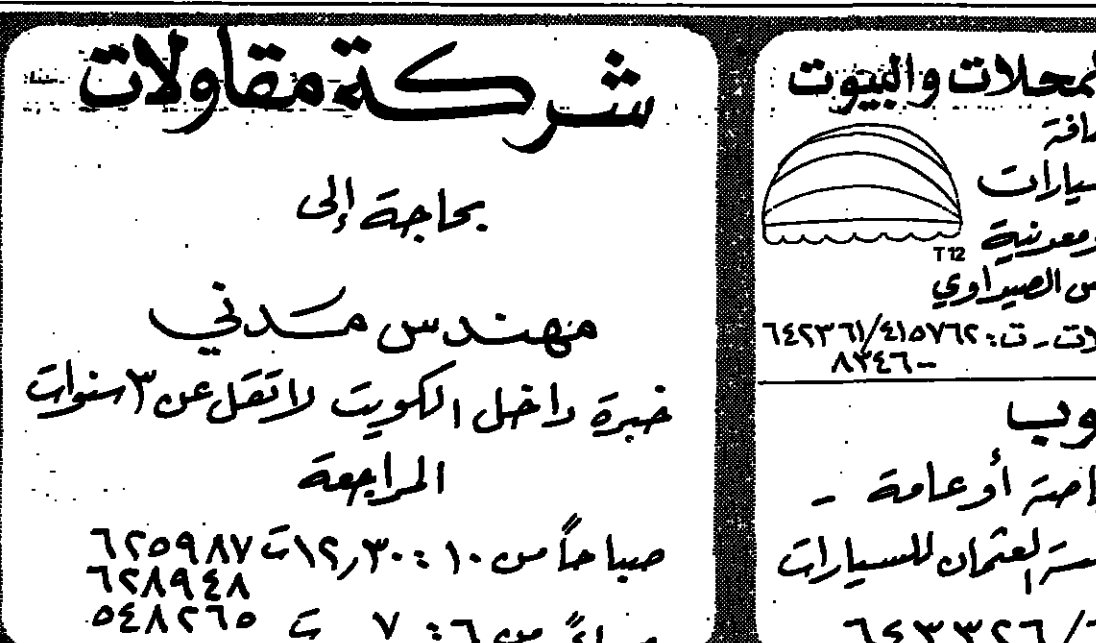 شركة مقاولات
بحاجة إلى
مهندس مدني
خبرة داخل الكويت لا تقل عن ٣ سنوات
المراجعة
صباحاً من ١٠ : ١٢,٣٠ ت ٦٢٥٩٨٧
٦٢٨٩٤٨
من ٦ : ٧ ت ٥٤٨٢٦٥
لمحلات والبيوت
سيارات
ومعدنية
T12
الصيداوي
ت : ٤١٥٧٦٢/٦٤٢٣٦١
٨٣٤٦-
أو عامة -
العثمان للسيارات
٦٤٣٣٢٦